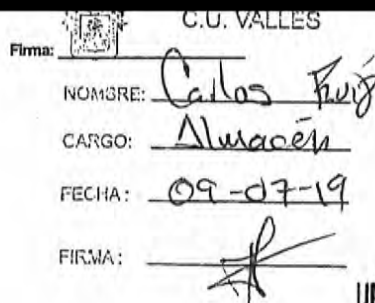 C.U. VALLES
Firma:
NOMBRE: Carlos Ruiz
CARGO: Almacén
FECHA: 09-07-19
FIRMA: